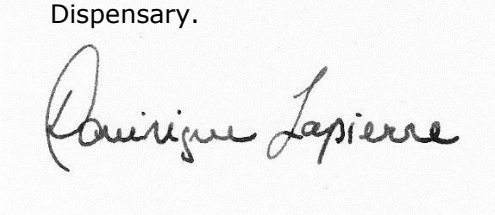 Dispensary.
Dominique Lapierre